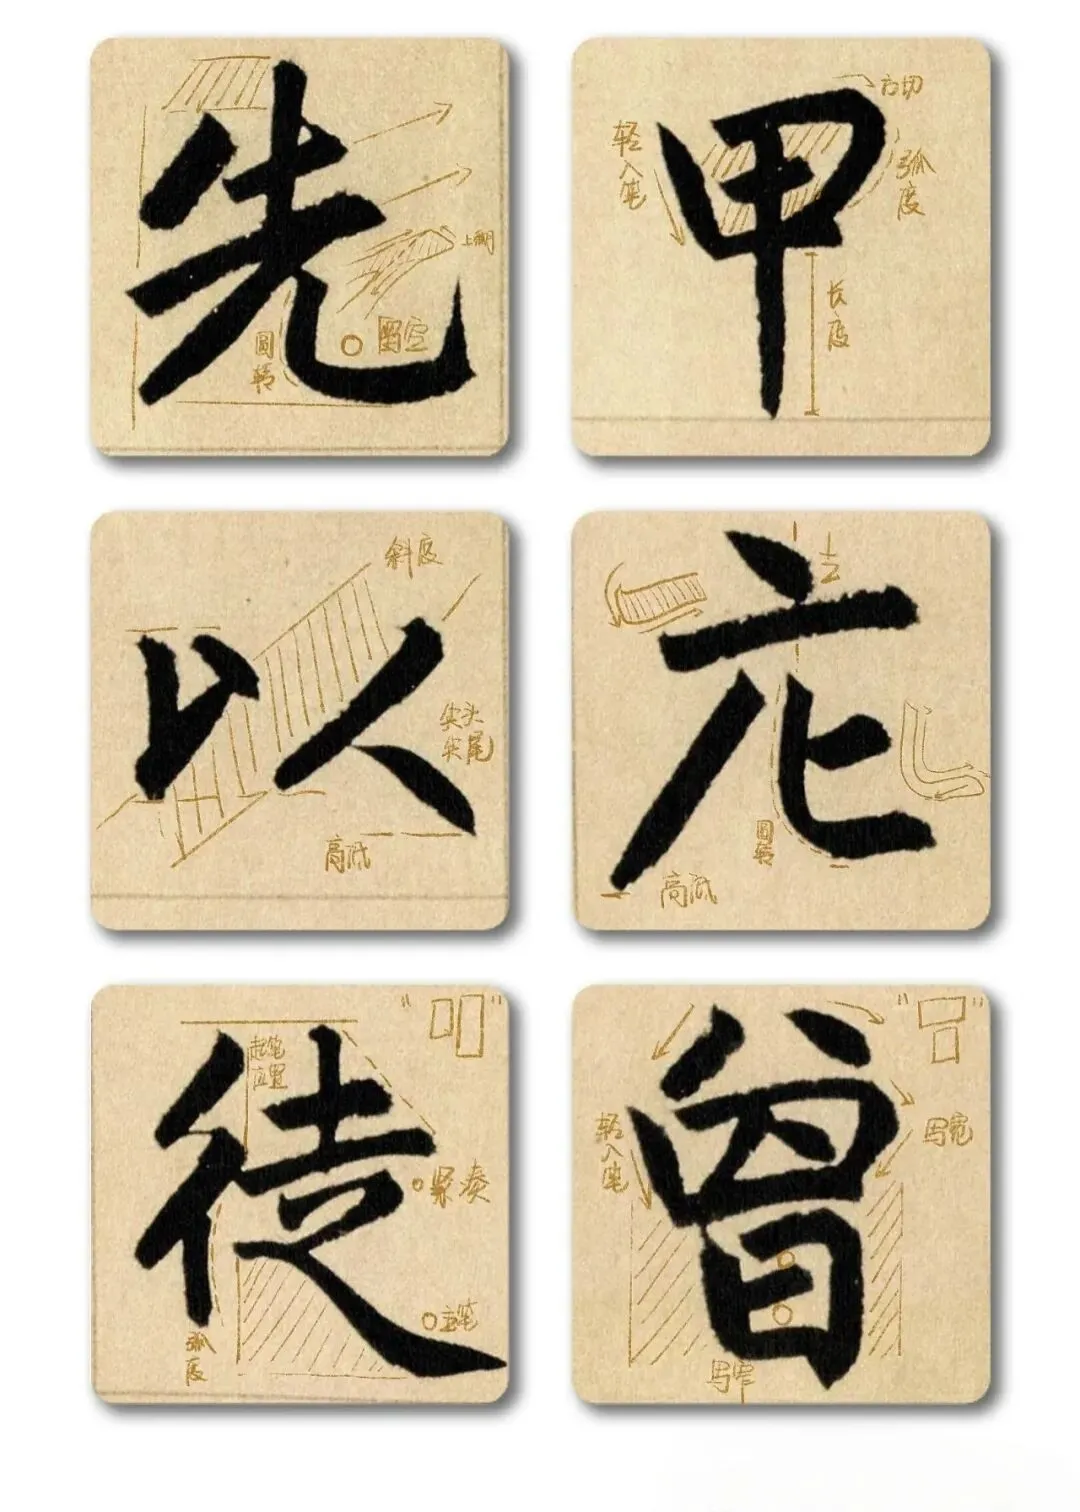 先
圆转
留空
甲
方切
轻入笔
弧度
长度
以
斜度
尖头
尖尾
高低
庀
1/2
圆转
高低
徒
起笔
位置
紧凑
主笔
弧度
曾
轻入笔
写宽
写窄